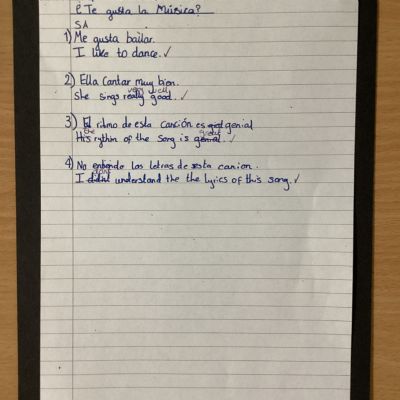 ¿Te gusta la Música?
SA
1) Me gusta bailar.
I like to dance. ✓
2) Ella Cantar muy bien.
very well
She sings really good. ✓
3) El ritmo de esta canción es genial
the great
His rythm of the song is genial. ✓
4) No entiendo las letras de esta canion.
dont
I didnt understand the the lyrics of this song. ✓